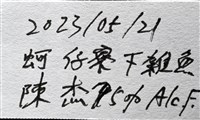 2023/05/21
蚵仔寮下雜魚
陳杰 75% Alc.